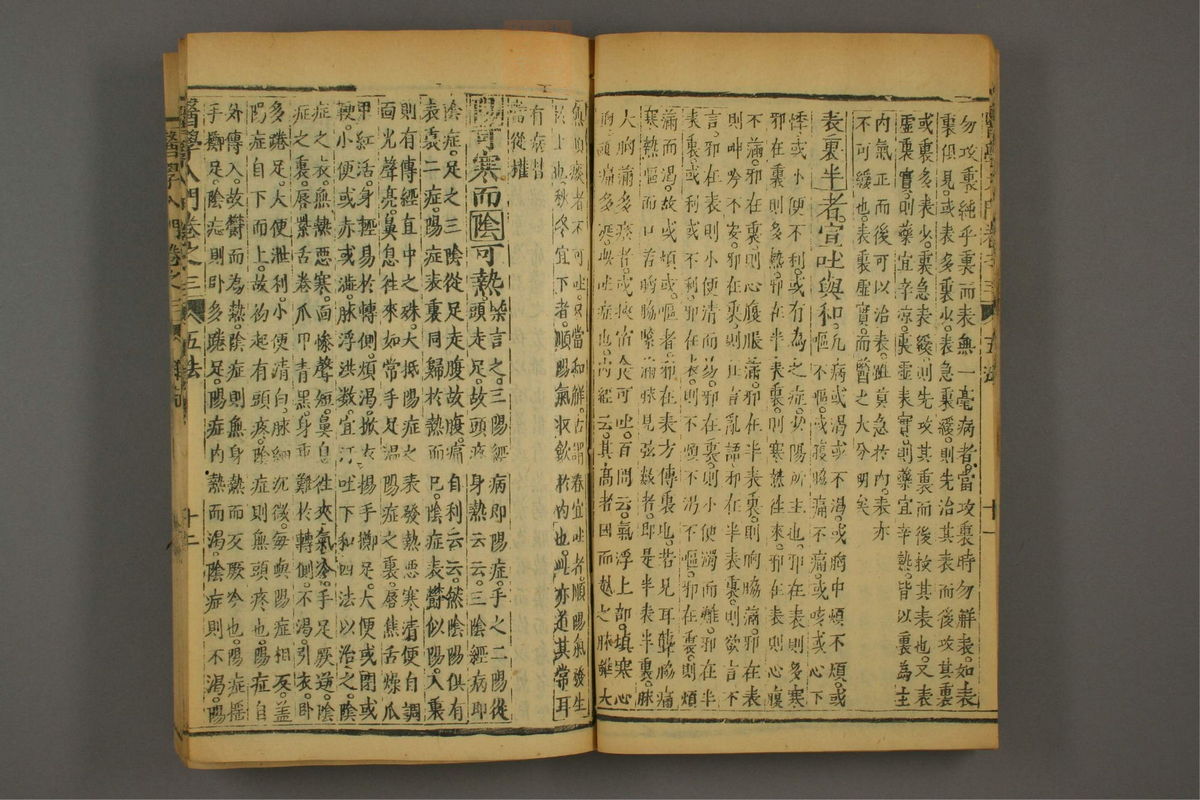 勿攻裏純乎裏而表無一毫病者當攻裏時勿解表如表
裏俱見或表多裏少表急裏緩則先治其表而後攻其裏
或裏多表少裏急表緩則先攻其裏而後救其表也又表
虛裏實則藥宜辛涼裏虛表實則藥宜辛熱皆以裏為主
內氣正而後可以治表雖莫急於內表亦
不可緩也表裏虛實而醫之大分明矣
表裏半者宣吐與和凡病或渴或不渴或胸中煩不煩或
嘔不嘔或腹脇痛不痛或咳或心下
悸或小便不利或有為之症少陽所主也邪在表則多寒
邪在裏則多熱邪在半表裏則寒熱往來邪在表則心腹
不滿邪在裏則心腹脹滿邪在半表裏則胸脇滿邪在表
則呻吟不安邪在裏則且言亂語邪在半表裏則欲言不
言邪在表則小便清而易邪在裏則小便濁而難邪在半
表裏或利或不利邪在表則不煩不渴不嘔邪在裏則煩
滿而渴故或煩或嘔者邪在表方傳裏也若見耳聾脇痛
寒熱嘔而口苦胸脇緊滿脉見弦數者即是半表半裏脉
大胸滿多痰者或挾宿食可吐百問云氣浮上部填塞心
胸頭痛多痰此吐症也內經云其高者因而越之脉雖大
無頭痰者不可吐只當和解古謂春宜吐者順陽氣發生
於上也秋冬宜下者順陽氣收飲於內也此亦道其常耳
有病皆
當從權
陽可寒而陰可熱𥮾言之三陽經病即陽症手之三陽從
頭走足故頭疼身熱云云三陰經病即
陰症足之三陰從足走腹故腹痛自利云云然陰陽俱有
表裏二症陽症表裏同歸於熱而巳陰症表欝似陽入裏
則有傳經直中之殊大抵陽症之表發熱惡寒清便自調
面光聲亮鼻息往來如常手足溫陽症之裏唇焦舌燥爪
甲紅活身輕易於轉側煩渴掀衣揚手擲足大便或閉或
鞕小便或赤或澁脉浮洪數宜汗吐下和四法以治之陰
症之表無熱惡寒面慘聲短鼻息往來氣冷手足厥逆陰
症之裏唇紫舌卷爪甲青黑身重難於轉側不渴引衣卧
多踡足大便泄利小便清白脉細沉微每與陽症相反盖
陽症自下而上故初起有頭疼陰症則無頭疼也陽症自
外傳入故欝而為熱陰症則無身熱而反厥冷也陽症揺
手擲足陰症則卧多踡足陽症內熱而渴陰症則不渴陽
醫學入門卷之三 五法 十二